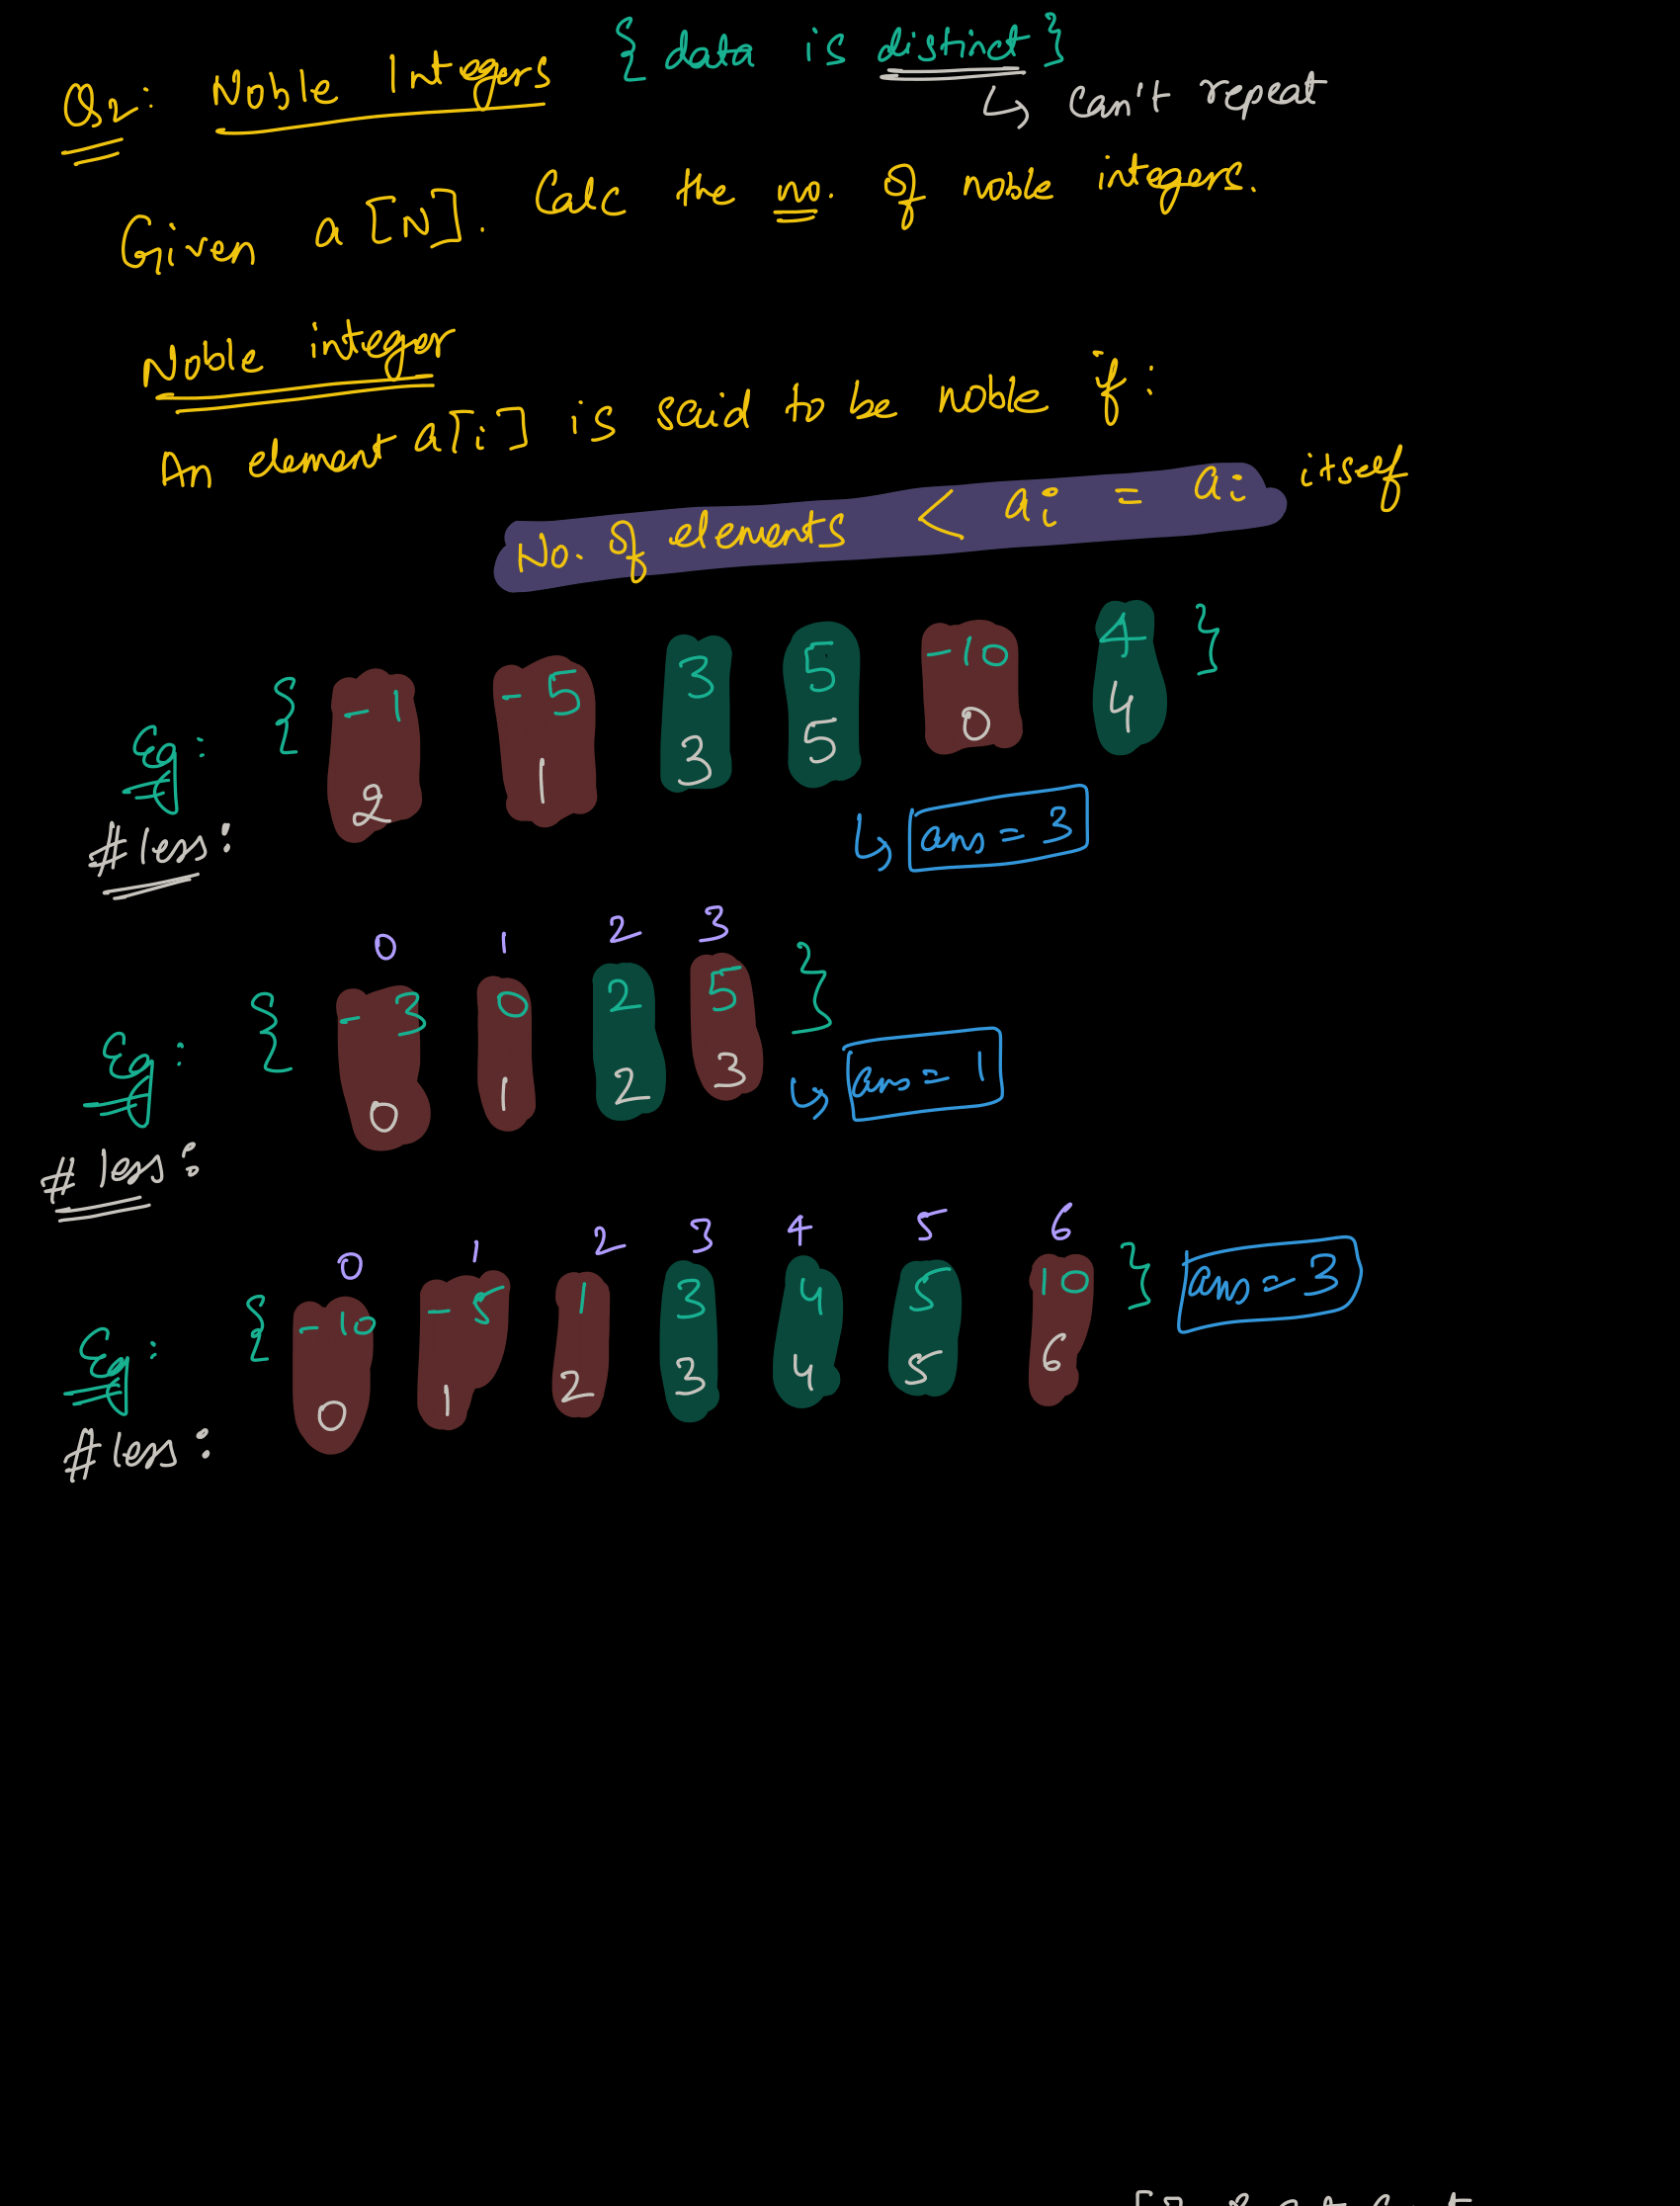 Q2: Noble Integers { data is distinct }
↳ can't repeat
Given a[N]. Calc the no. of noble integers.
Noble integer
An element a[i] is said to be noble if:
No. of elements < ai = ai itself
Eg: { -1 -5 3 5 -10 4 }
#less: 2 1 3 5 0 4
↳ ans = 3
0 1 2 3
Eg: { -3 0 2 5 }
# less: 0 1 2 3
↳ ans = 1
0 1 2 3 4 5 6
Eg: { -10 -5 1 3 4 5 10 } ans = 3
#less: 0 1 2 3 4 5 6